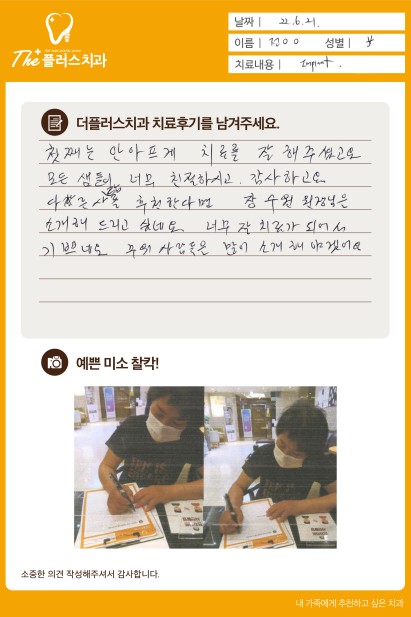 The 플러스치과
날짜 | 22. 6. 21.
이름 | 전ㅇㅇ 성별 |
치료내용 | Implant.
더플러스치과 치료후기를 남겨주세요.
첫째는 안아프게 치료를 잘 해주셨고요
모든 샘들이 너무 친절하시고. 감사하고요
다른 추천한다면 장 수원 원장님은
소개해 드리고 싶네요 너무 잘 치료가 되어서
기쁘네요 주위 사람들은 많이 소개해야겠어요
예쁜 미소 찰칵!
소중한 의견 작성해주셔서 감사합니다.
내 가족에게 추천하고 싶은 치과